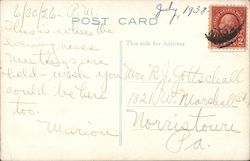 6/30/36 - P.M.
July, 1938
POST CARD
This is where the
evening mass
meetings are
held - wish you
could be here
too.
Marion
This side for Address
Mrs R. J. Gottschall
Marshall St
Norristown
Pa.